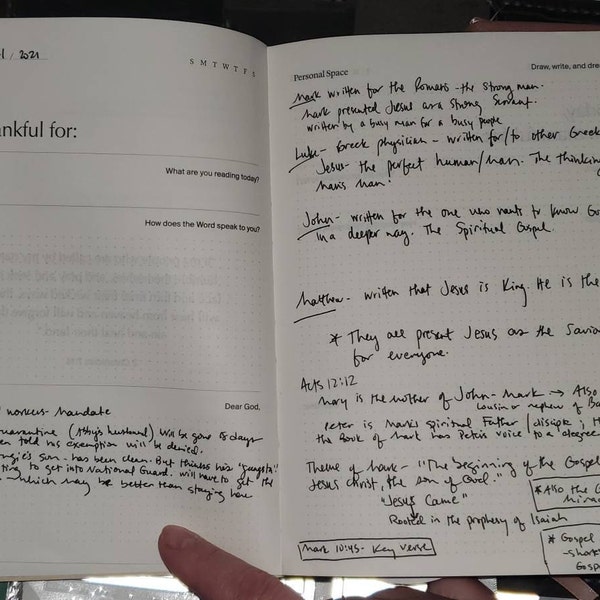 / 2021
S M T W T F S
ankful for:
What are you reading today?
How does the Word speak to you?
Dear God,
workers- Mandate
uarantine (Abby's husband) will be gone 15 days
en told his exemption will be denied.
gie's son- has been clean. But thinks he's "gangsta".
ting to get into National Guard. will have to get the
which may be better than staying here
Personal Space
Draw, write, and dre
Mark written for the Romans - the strong man.
Mark presented Jesus as a strong servant.
written by a busy man for a busy people
Luke- Greek physician - written for/to other Greek
Jesus- the perfect human/man. The thinking
man's man.
John- written for the one who wants to know Go
in a deeper way. The Spiritual Gospel.
Matthew- written that Jesus is King. He is the
* They all present Jesus as the Savio
for everyone.
Acts 12:12
Mary is the mother of John-Mark → Also
cousin or nephew of Ba
Peter is Mark's spiritual Father / disciple; H
the Book of Mark has Peter's voice to a degree
Theme of Mark- "The beginning of the Gospel
Jesus Christ, the son of God."
"Jesus Came"
Rooted in the prophesy of Isaiah
* Also the G
mirac
Mark 10:45- Key verse
* Gospel
-short
Gospe